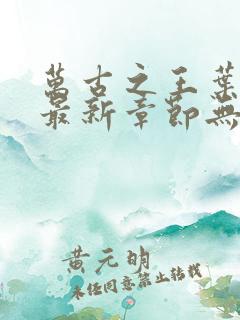 萬古之王葉
最新章節無
黃元明
未经同意禁止转载